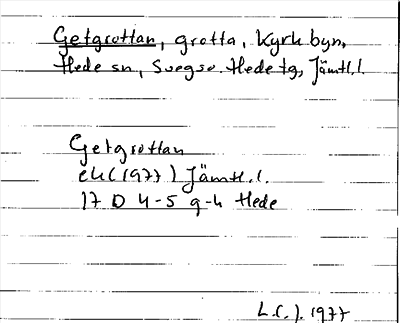 Getgrottan, grotta, Kyrkbyn,
Hede sn, Svegs o. Hede tg, Jämtl. l.
Getgrottan
ek (1977) Jämtl. l.
17 D 4-5 g-h Hede
L.C.J. 1977